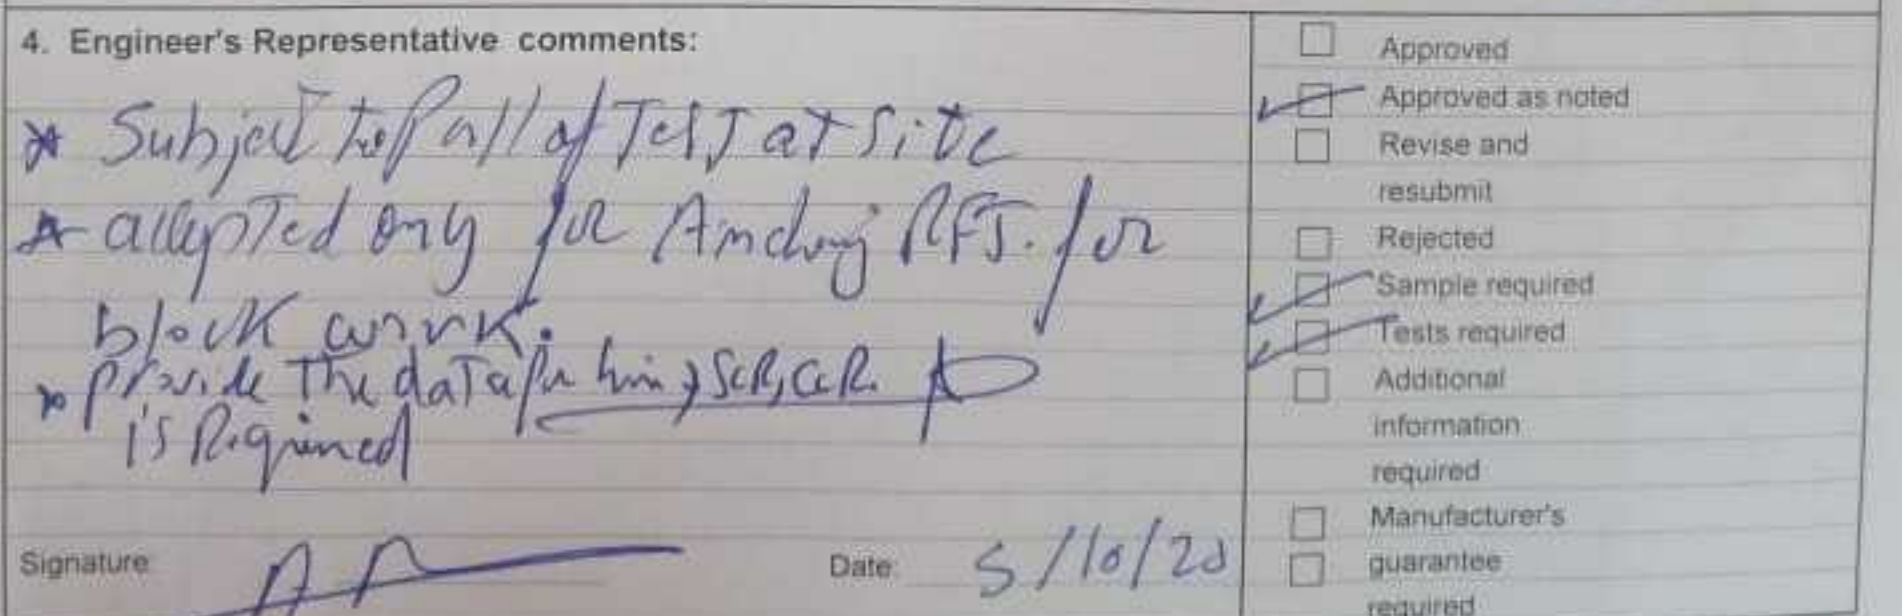 4. Engineer's Representative comments:
* Subject to Pull of Test at site
* accepted only for Anchoring RFT. for
block work.
* provide the data
is Required
Signature:
Date: 5/10/20
Approved
Approved as noted
Revise and
resubmit
Rejected
Sample required
Tests required
Additional
information
required
Manufacturer's
guarantee
required